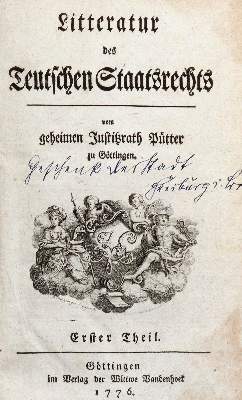 Litteratur
des
Teutschen Staatsrechts
vom
geheimen Justitzrath Pütter
zu Göttingen.
Geschenk der Stadt
Freiburg i. Br
Erster Theil.
Göttingen
im Verlag der Wittwe Vandenhoek
1776.